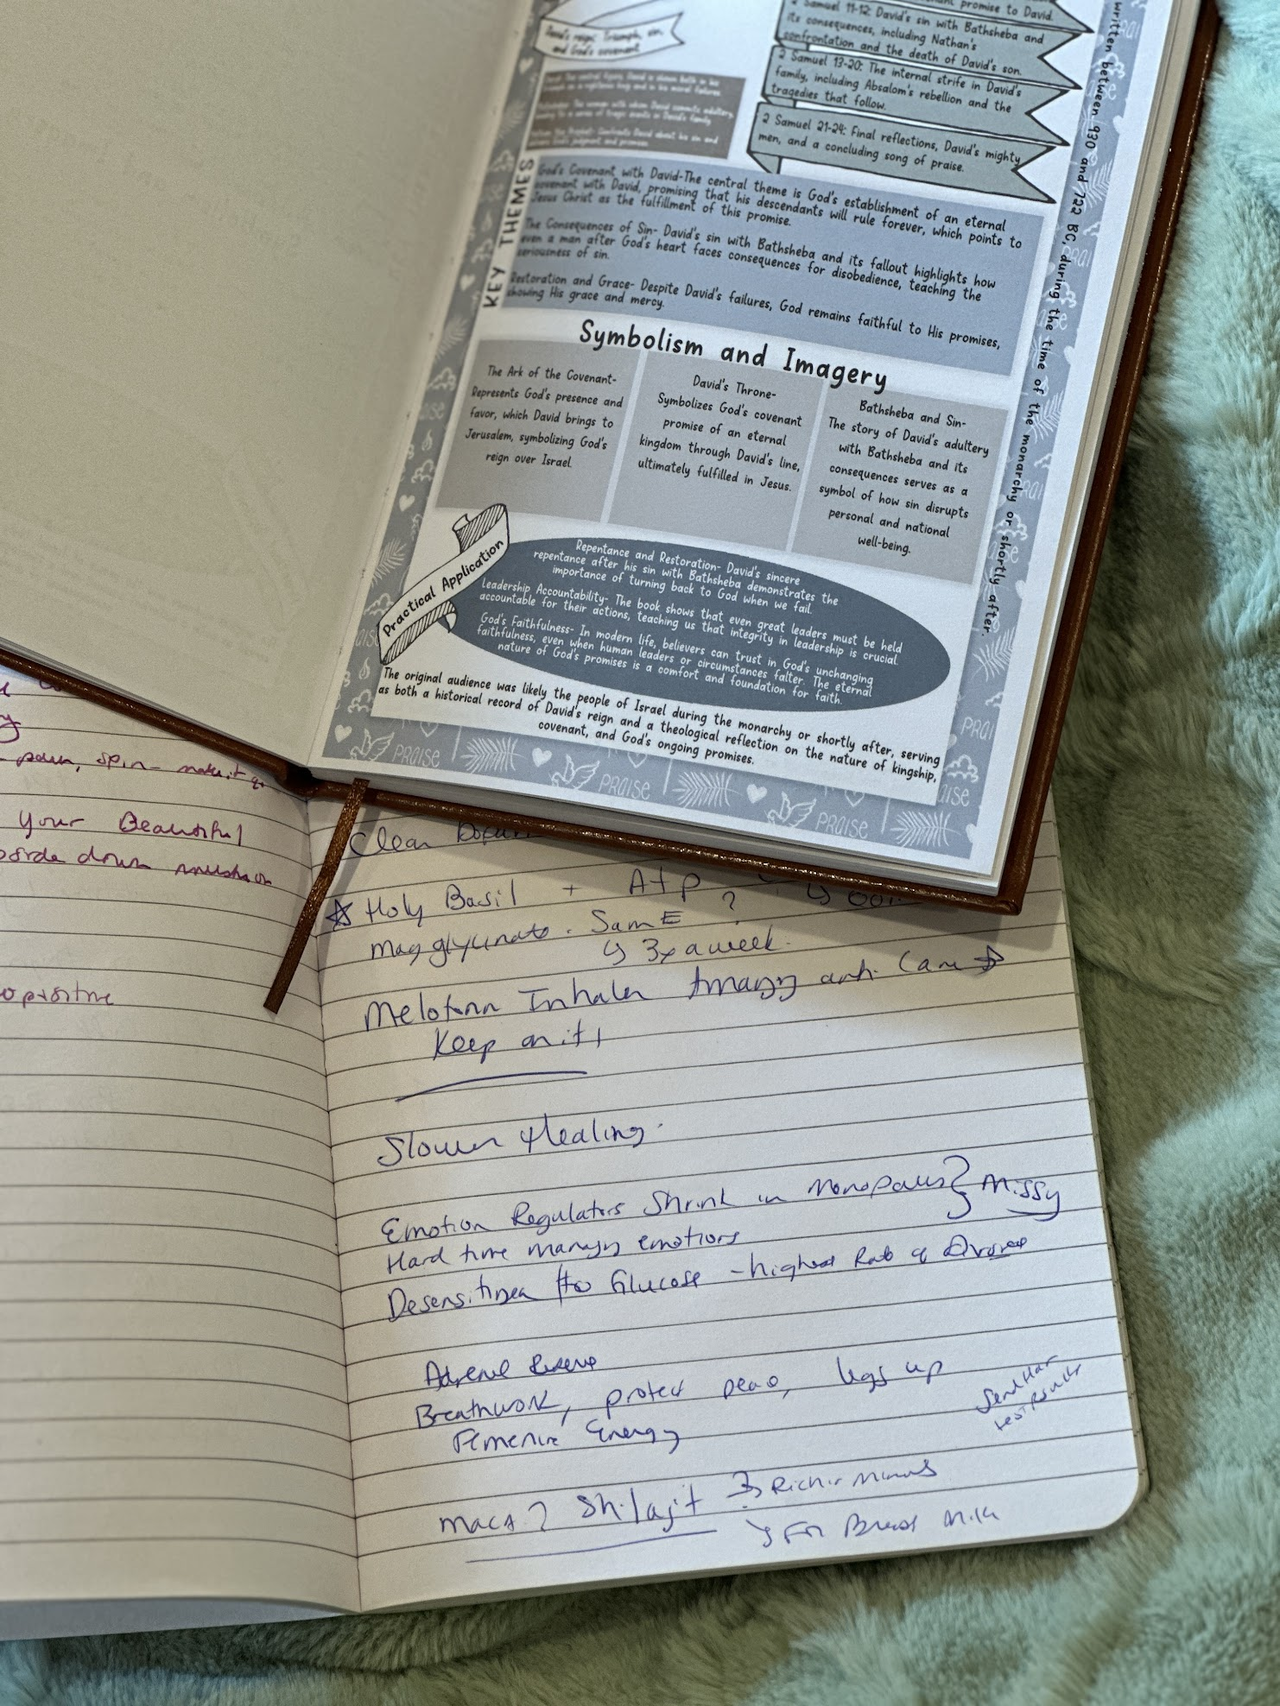 promise to David.
2 Samuel 11-12: David's sin with Bathsheba and
its consequences, including Nathan's
confrontation and the death of David's son.
2 Samuel 13-20: The internal strife in David's
family, including Absalom's rebellion and the
tragedies that follow.
2 Samuel 21-24: Final reflections, David's mighty
men, and a concluding song of praise.
and God's covenant
written between 930 and 722 BC, during the time of the monarchy or shortly after.
KEY THEMES
God's Covenant with David-The central theme is God's establishment of an eternal
covenant with David, promising that his descendants will rule forever, which points to
Jesus Christ as the fulfillment of this promise.
The Consequences of Sin- David's sin with Bathsheba and its fallout highlights how
even a man after God's heart faces consequences for disobedience, teaching the
seriousness of sin.
Restoration and Grace- Despite David's failures, God remains faithful to His promises,
showing His grace and mercy.
Symbolism and Imagery
The Ark of the Covenant-
Represents God's presence and
favor, which David brings to
Jerusalem, symbolizing God's
reign over Israel.
David's Throne-
Symbolizes God's covenant
promise of an eternal
kingdom through David's line,
ultimately fulfilled in Jesus.
Bathsheba and Sin-
The story of David's adultery
with Bathsheba and its
consequences serves as a
symbol of how sin disrupts
personal and national
well-being.
Practical Application
Repentance and Restoration- David's sincere
repentance after his sin with Bathsheba demonstrates the
importance of turning back to God when we fail.
Leadership Accountability- The book shows that even great leaders must be held
accountable for their actions, teaching us that integrity in leadership is crucial.
God's Faithfulness- In modern life, believers can trust in God's unchanging
faithfulness, even when human leaders or circumstances falter. The eternal
nature of God's promises is a comfort and foundation for faith.
The original audience was likely the people of Israel during the monarchy or shortly after, serving
as both a historical record of David's reign and a theological reflection on the nature of kingship,
covenant, and God's ongoing promises.
PRAISE PRAISE PRAISE
spin-
your Beautiful
down
Clean
Holy Basil + Atp ?
mag glycinate. SamE
3x a week.
Inhaler
Keep on it!
Slower Healing.
Emotion Regulators Shrink in Monopaus } Missy
Hard time managn emotions
to Glucose - highest Rate of Divorce
Adrenal Reserve
Breathwork, protect peac, legs up
Energy
Send Her
test Results
maca? Shilajit
For Breast Milk